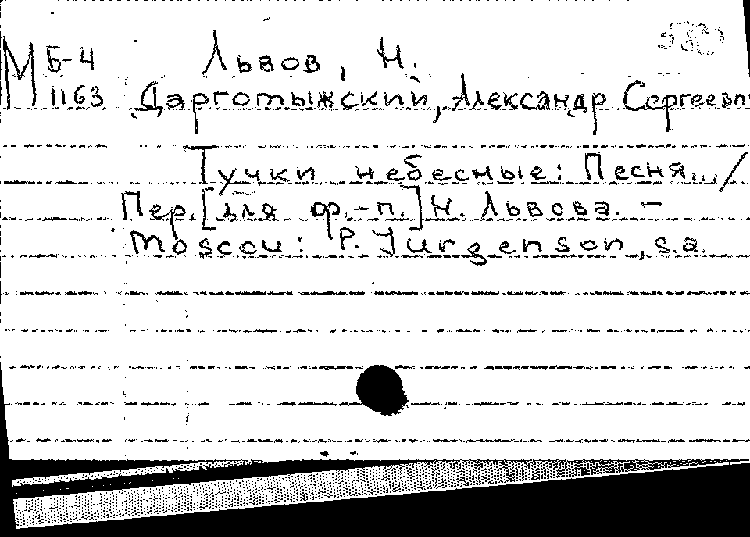 М Б-4 Львов, Н.
1163 Даргомыжский, Александр Сергееви
Тучки небесные: Песня... /
Пер. [для ф.-п.] Н. Львова. -
Moscou: P. Jurgenson, s.a.